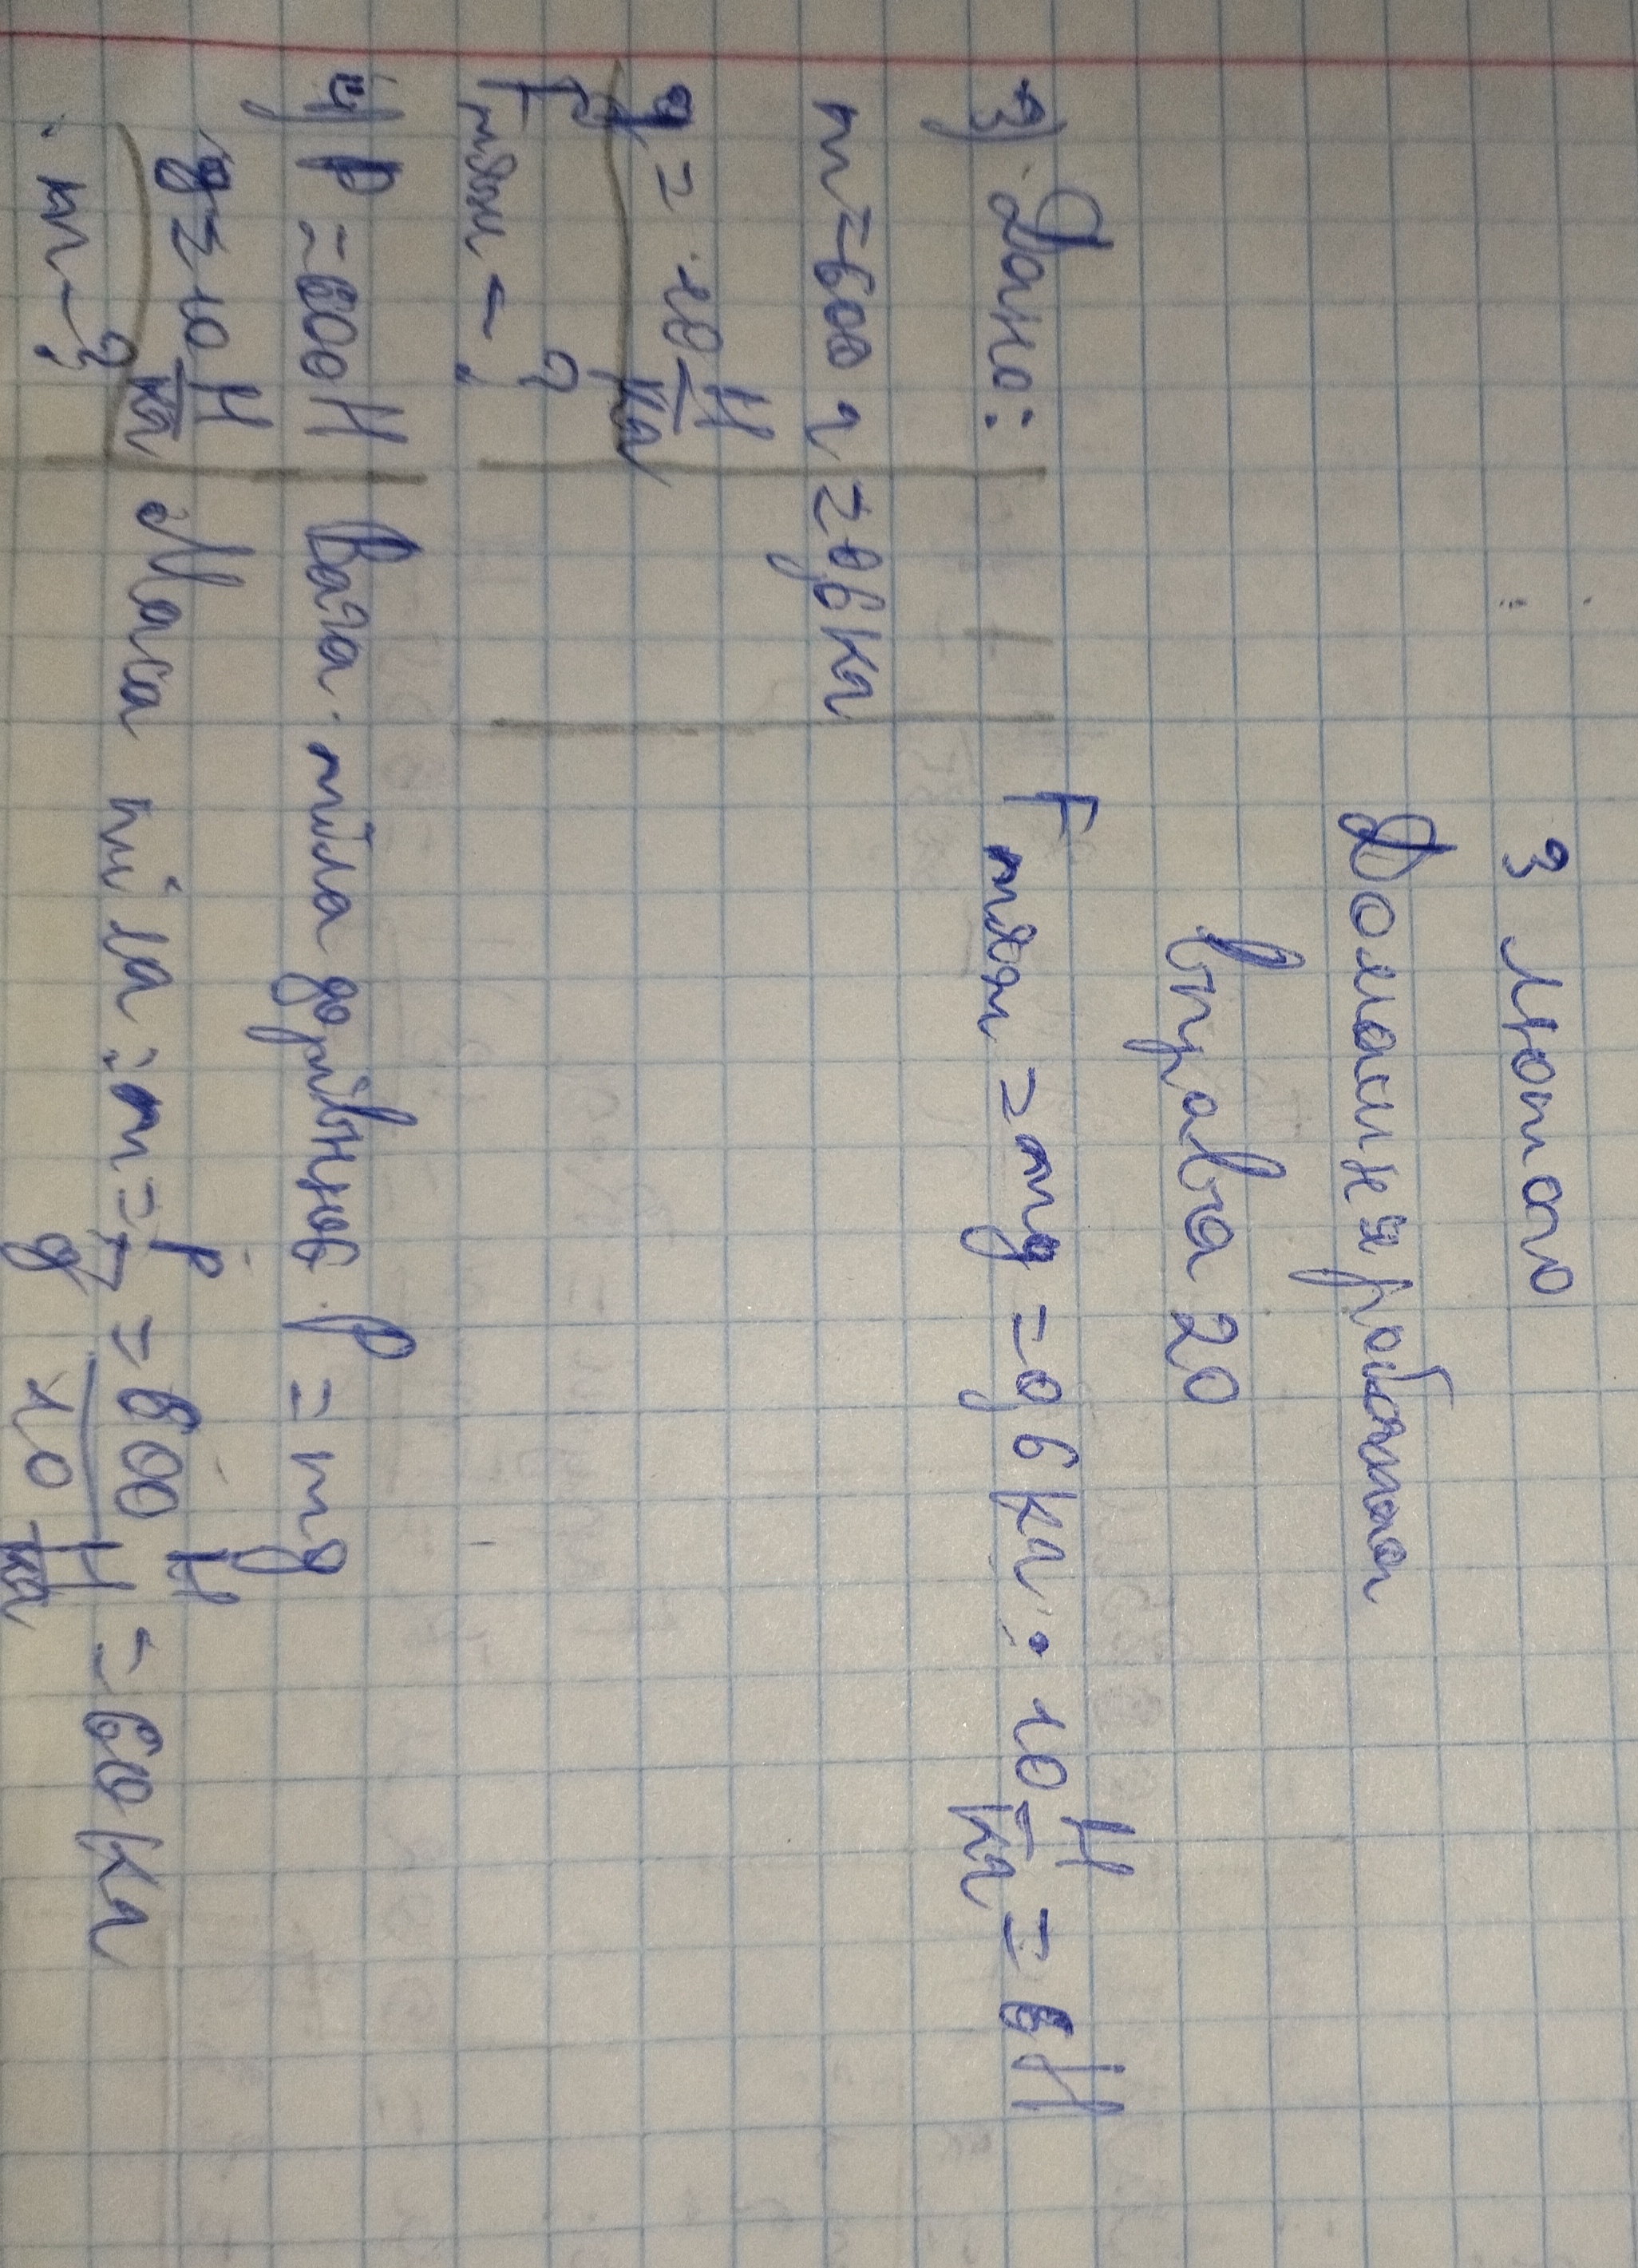 3 лютого
Домашня робота
Вправа 20
3) Дано:
m=600 г = 0,6 кг
g = 10 Н/кг
Fтяж - ?
Fтяж = mg = 0,6 кг · 10 Н/кг = 6 Н
4) P = 600 Н
g = 10 Н/кг
m - ?
Вага тіла дорівнює P = mg
Маса тіла: m = P/g = 600 Н / 10 Н/кг = 60 кг